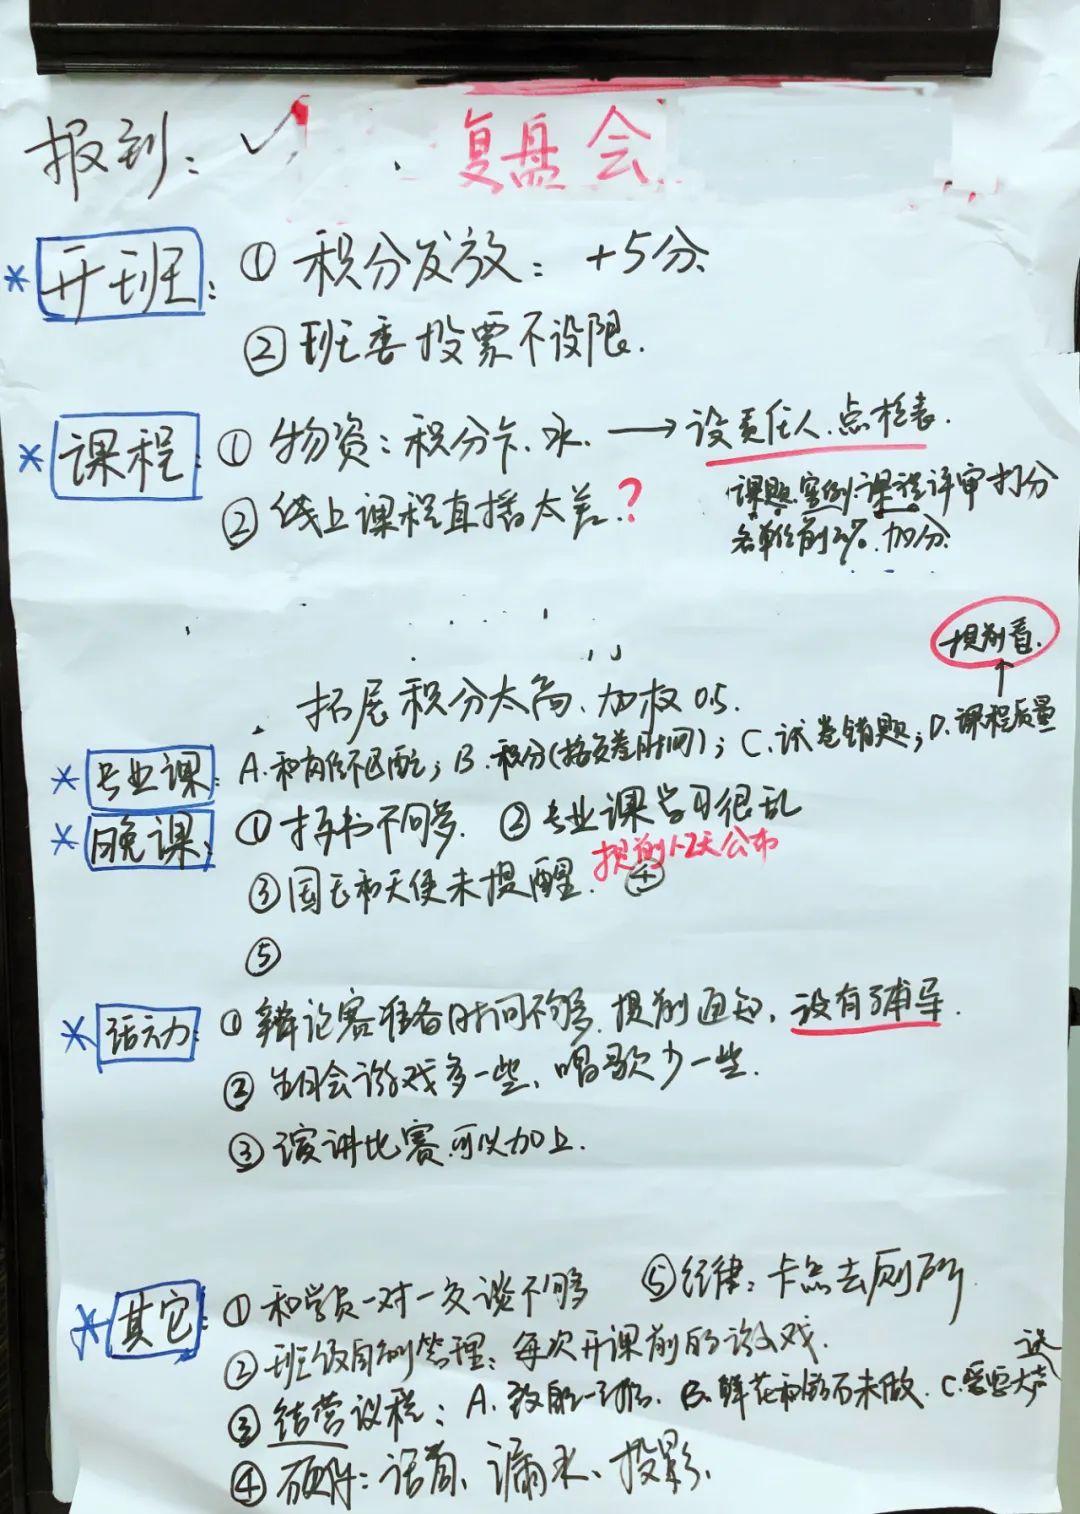 报到：✓ 复盘会
*开班：① 积分发放：+5分.
② 班委投票不设限.
*课程：① 物资：积分卡.水. → 设责任人.点检表.
课题.案例.课程评审打分
② 线上课程直播太差.？
名单位前2%.加分.
提前看.
拓展积分太高、加权0.5.
*专业课：A.和岗位不匹配；B.积分(拓负差时间)；C.试卷错题；D.课程质量
*晚课：① 抄书不间多. ② 专业课学习很乱
提前1-2天公布
③ 国王和天使未提醒. ④
⑤
*活动：① 辩论赛准备时间不够.提前通知、没有辅导.
② 生日会游戏多一些、唱歌少一些.
③ 演讲比赛.可以加上.
*其它：① 和学员一对一交谈不够 ⑤纪律：卡点去厕所
② 班级自制管理：每次开课前的游戏.
③ 结营议程：A. B.鲜花和 未做. C.要 大声
④ 硬件：话筒、漏水、投影.